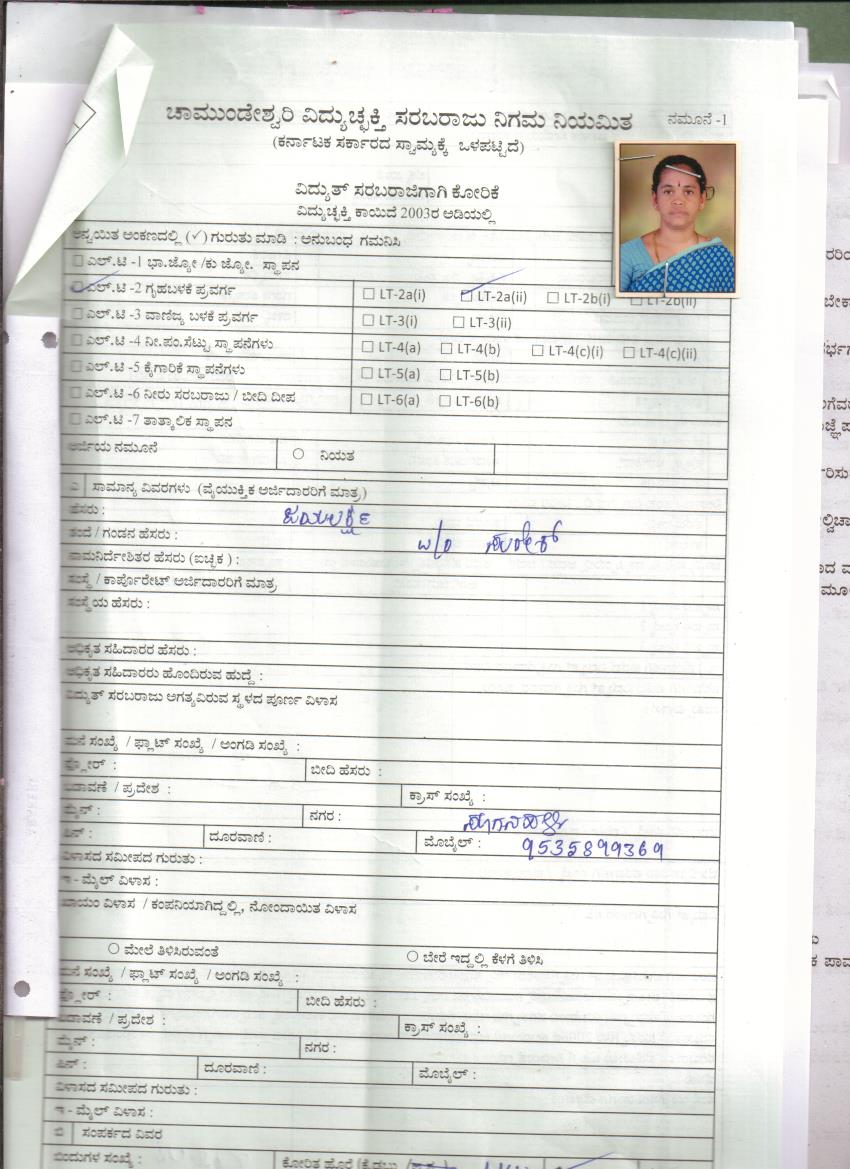 ಚಾಮುಂಡೇಶ್ವರಿ ವಿದ್ಯುಚ್ಛಕ್ತಿ ಸರಬರಾಜು ನಿಗಮ ನಿಯಮಿತ ನಮೂನೆ -1
(ಕರ್ನಾಟಕ ಸರ್ಕಾರದ ಸ್ವಾಮ್ಯಕ್ಕೆ ಒಳಪಟ್ಟಿದೆ)
ವಿದ್ಯುತ್ ಸರಬರಾಜಿಗಾಗಿ ಕೋರಿಕೆ
ವಿದ್ಯುಚ್ಛಕ್ತಿ ಕಾಯಿದೆ 2003ರ ಅಡಿಯಲ್ಲಿ
ಅನ್ವಯಿತ ಅಂಕಣದಲ್ಲಿ (✓) ಗುರುತು ಮಾಡಿ : ಅನುಬಂಧ ಗಮನಿಸಿ
☐ ಎಲ್.ಟಿ -1 ಭಾ.ಜ್ಯೋ /ಕು ಜ್ಯೋ. ಸ್ಥಾಪನ
☑ ಎಲ್.ಟಿ -2 ಗೃಹಬಳಕೆ ಪ್ರವರ್ಗ ☐ LT-2a(i) ☑ LT-2a(ii) ☐ LT-2b(i) ☐ LT-2b(ii)
☐ ಎಲ್.ಟಿ -3 ವಾಣಿಜ್ಯ ಬಳಕೆ ಪ್ರವರ್ಗ ☐ LT-3(i) ☐ LT-3(ii)
☐ ಎಲ್.ಟಿ -4 ನೀ.ಪಂ.ಸೆಟ್ಟು ಸ್ಥಾಪನೆಗಳು ☐ LT-4(a) ☐ LT-4(b) ☐ LT-4(c)(i) ☐ LT-4(c)(ii)
☐ ಎಲ್.ಟಿ -5 ಕೈಗಾರಿಕೆ ಸ್ಥಾಪನೆಗಳು ☐ LT-5(a) ☐ LT-5(b)
☐ ಎಲ್.ಟಿ -6 ನೀರು ಸರಬರಾಜು / ಬೀದಿ ದೀಪ ☐ LT-6(a) ☐ LT-6(b)
☐ ಎಲ್.ಟಿ -7 ತಾತ್ಕಾಲಿಕ ಸ್ಥಾಪನ
ಅರ್ಜಿಯ ನಮೂನೆ ○ ನಿಯತ
ಎ ಸಾಮಾನ್ಯ ವಿವರಗಳು (ವೈಯುಕ್ತಿಕ ಅರ್ಜಿದಾರರಿಗೆ ಮಾತ್ರ)
ಹೆಸರು :
ತಂದೆ / ಗಂಡನ ಹೆಸರು :
ನಾಮನಿರ್ದೇಶಿತರ ಹೆಸರು (ಐಚ್ಛಿಕ ) :
ಸಂಸ್ಥೆ / ಕಾರ್ಪೊರೇಟ್ ಅರ್ಜಿದಾರರಿಗೆ ಮಾತ್ರ
ಸಂಸ್ಥೆಯ ಹೆಸರು :
ಅಧಿಕೃತ ಸಹಿದಾರರ ಹೆಸರು :
ಅಧಿಕೃತ ಸಹಿದಾರರು ಹೊಂದಿರುವ ಹುದ್ದೆ :
ವಿದ್ಯುತ್ ಸರಬರಾಜು ಅಗತ್ಯವಿರುವ ಸ್ಥಳದ ಪೂರ್ಣ ವಿಳಾಸ
ಮನೆ ಸಂಖ್ಯೆ / ಫ್ಲಾಟ್ ಸಂಖ್ಯೆ / ಅಂಗಡಿ ಸಂಖ್ಯೆ :
ಫ್ಲೋರ್ : ಬೀದಿ ಹೆಸರು :
ಬಡಾವಣೆ / ಪ್ರದೇಶ : ಕ್ರಾಸ್ ಸಂಖ್ಯೆ :
ಮೈನ್ : ನಗರ :
ಪಿನ್ : ದೂರವಾಣಿ : ಮೊಬೈಲ್ : 9535899369
ವಿಳಾಸದ ಸಮೀಪದ ಗುರುತು :
ಇ - ಮೈಲ್ ವಿಳಾಸ :
ಖಾಯಂ ವಿಳಾಸ / ಕಂಪನಿಯಾಗಿದ್ದಲ್ಲಿ, ನೋಂದಾಯಿತ ವಿಳಾಸ
○ ಮೇಲೆ ತಿಳಿಸಿರುವಂತೆ ○ ಬೇರೆ ಇದ್ದಲ್ಲಿ ಕೆಳಗೆ ತಿಳಿಸಿ
ಮನೆ ಸಂಖ್ಯೆ / ಫ್ಲಾಟ್ ಸಂಖ್ಯೆ / ಅಂಗಡಿ ಸಂಖ್ಯೆ :
ಫ್ಲೋರ್ : ಬೀದಿ ಹೆಸರು :
ಬಡಾವಣೆ / ಪ್ರದೇಶ : ಕ್ರಾಸ್ ಸಂಖ್ಯೆ :
ಮೈನ್ : ನಗರ :
ಪಿನ್ : ದೂರವಾಣಿ : ಮೊಬೈಲ್ :
ವಿಳಾಸದ ಸಮೀಪದ ಗುರುತು :
ಇ - ಮೈಲ್ ವಿಳಾಸ :
ಬಿ ಸಂಪರ್ಕದ ವಿವರ
ಬಿಂದುಗಳ ಸಂಖ್ಯೆ : ಕೋರಿತ ಹೊರೆ